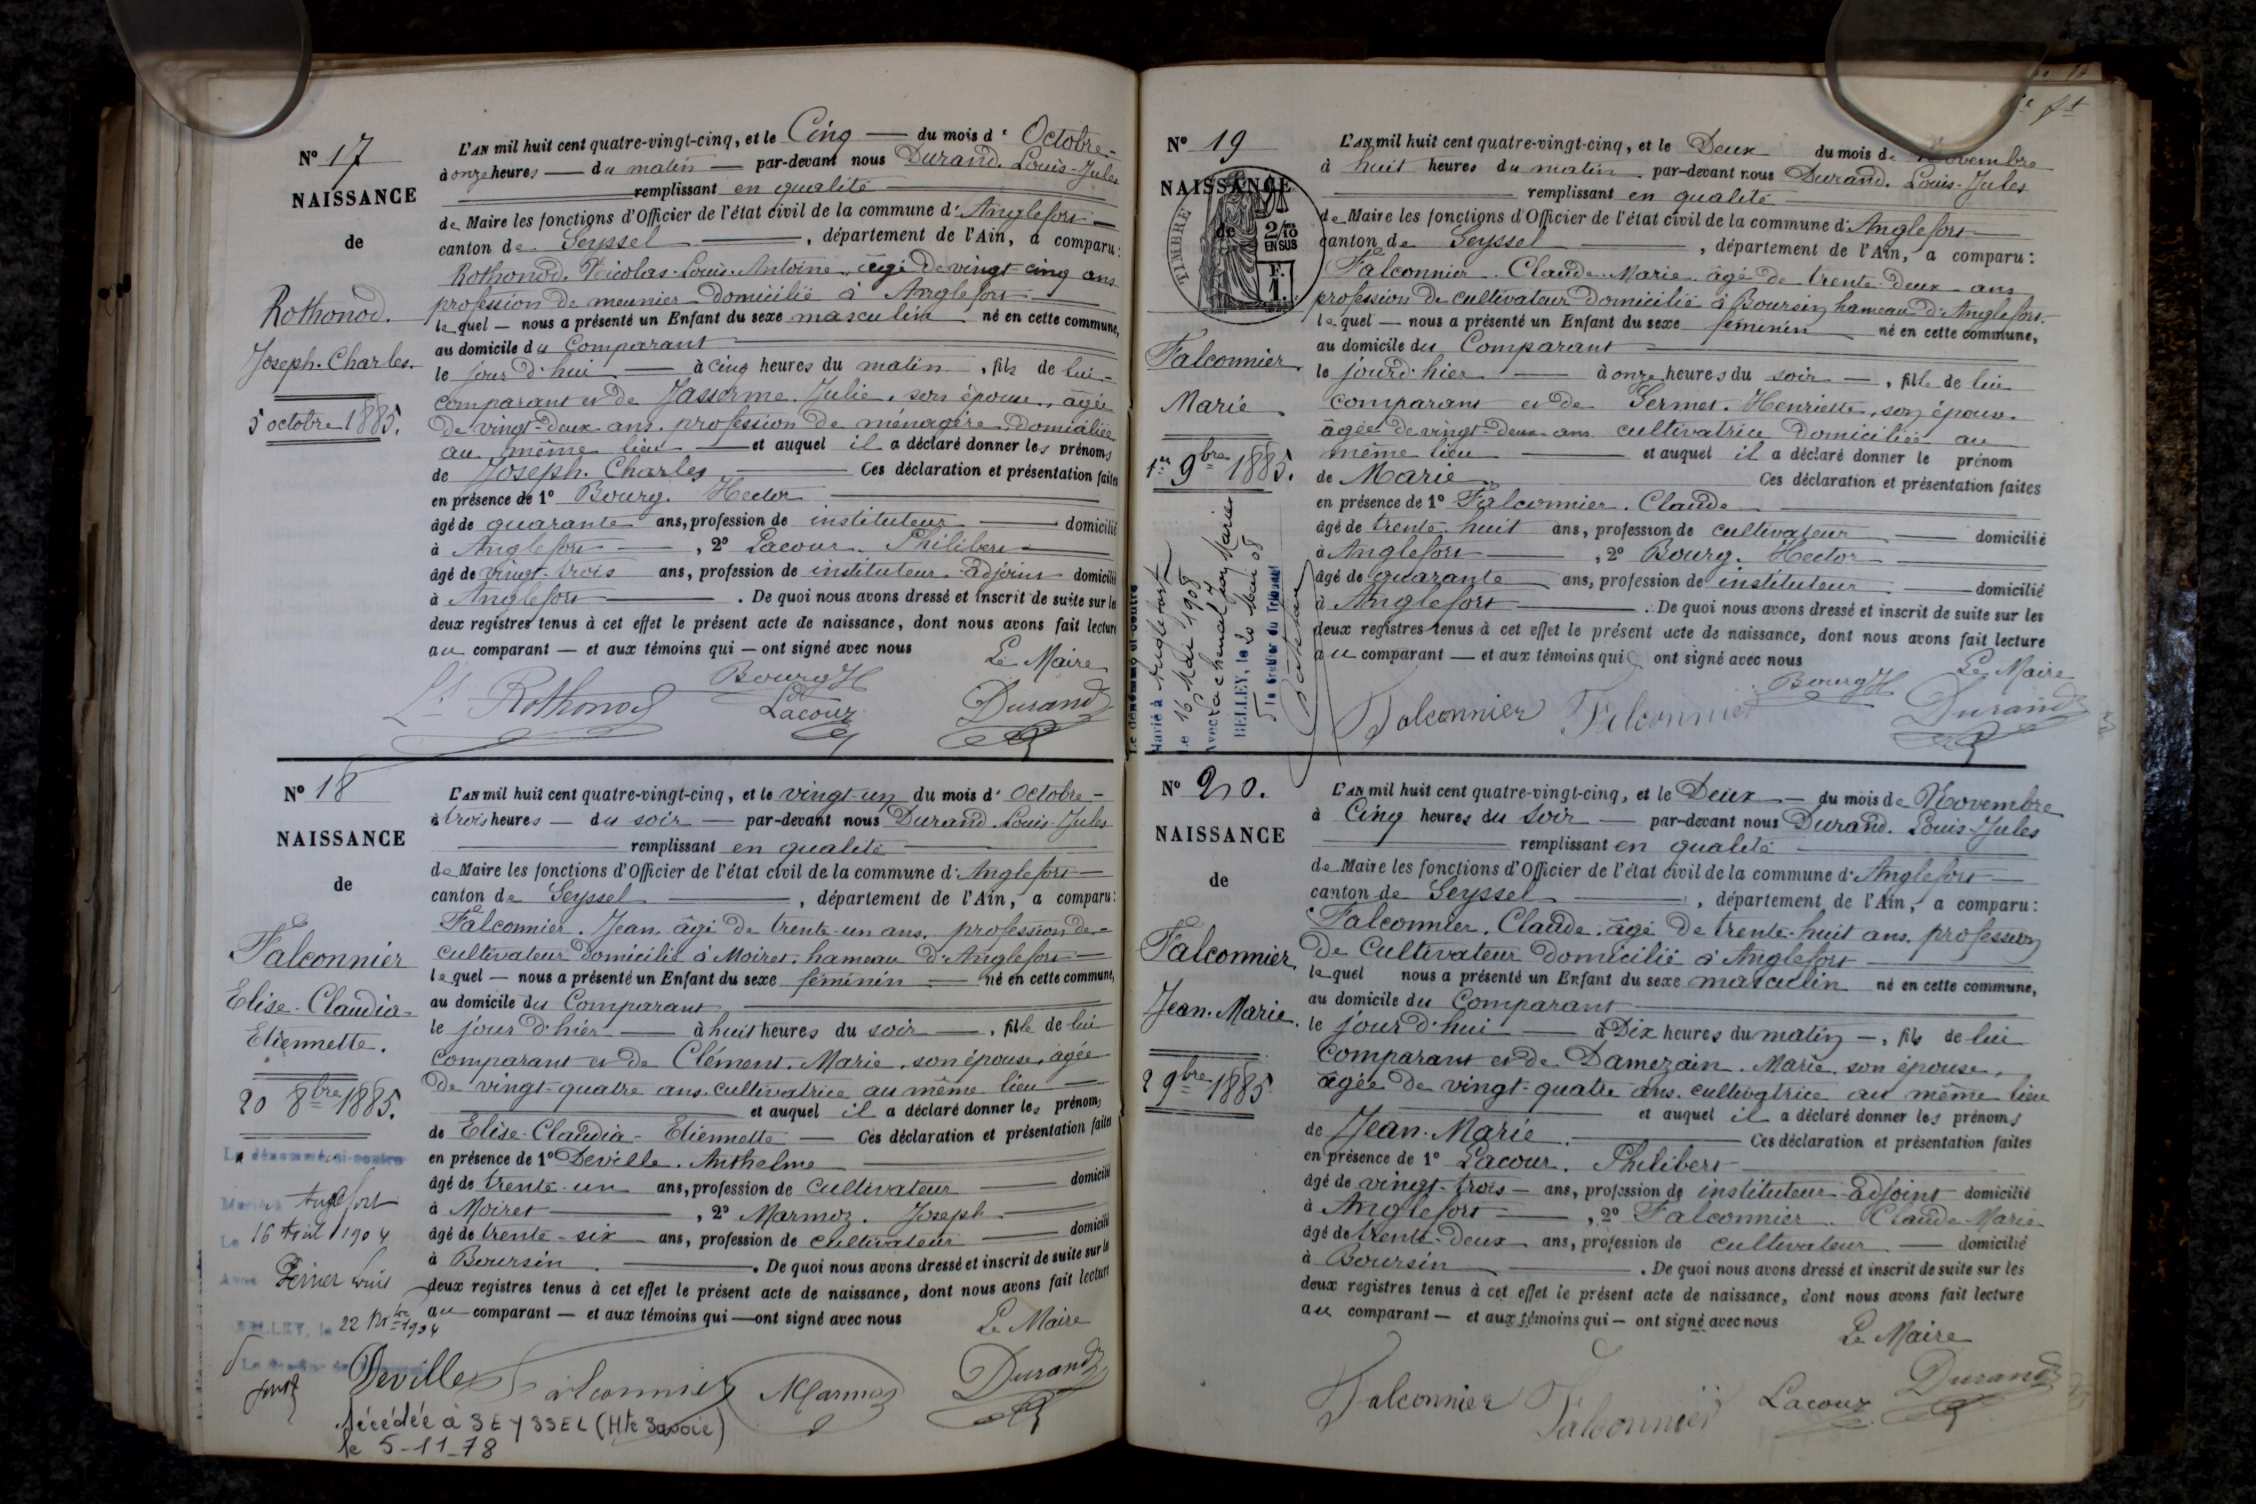 N° 17
NAISSANCE
de
Rothonod.
Joseph. Charles.
5 octobre 1885.
L'AN mil huit cent quatre-vingt-cinq, et le Cinq — du mois d' Octobre -
à onze heures — du matin — par-devant nous Durand. Louis-Jules
remplissant en qualité
de Maire les fonctions d'Officier de l'état civil de la commune d' Anglefort
canton de Seyssel — , département de l'Ain, a comparu :
Rothonod. Nicolas-Louis-Antoine, âgé de vingt-cinq ans
profession de meunier domicilié à Anglefort
lequel — nous a présenté un Enfant du sexe masculin né en cette commune,
au domicile du Comparant
le jour d'hui — à cinq heures du matin — , fils de lui
comparant et de Jasserme. Julie, son épouse, âgée
de vingt-deux ans. profession de ménagère domiciliée
au même lieu — et auquel il a déclaré donner les prénoms
de Joseph. Charles — Ces déclaration et présentation faites
en présence de 1° Bourg. Hector
âgé de quarante ans, profession de instituteur — domicilié
à Anglefort — , 2° Lacour. Philibert
âgé de vingt-trois ans, profession de instituteur-adjoint domicilié
à Anglefort — . De quoi nous avons dressé et inscrit de suite sur les
deux registres tenus à cet effet le présent acte de naissance, dont nous avons fait lecture
au comparant — et aux témoins qui — ont signé avec nous
Le Maire
Ls Rothonod Bourg H Lacour Durand
N° 18
NAISSANCE
de
Falconnier
Elise-Claudia-
Etiennette.
20 8bre 1885.
La dénommée ci-contre
Anglefort
Le 16 Avril 1904
Avec Perner Louis
BELLEY, le 22 Nbre 1904
L'AN mil huit cent quatre-vingt-cinq, et le vingt-un du mois d' Octobre -
à trois heures — du soir — par-devant nous Durand. Louis-Jules
remplissant en qualité
de Maire les fonctions d'Officier de l'état civil de la commune d' Anglefort
canton de Seyssel — , département de l'Ain, a comparu :
Falconnier. Jean, âgé de trente-un ans, profession de
cultivateur domicilié à Moiret, hameau d'Anglefort
lequel — nous a présenté un Enfant du sexe féminin — né en cette commune,
au domicile du Comparant
le jour d'hier — à huit heures du soir — , fille de lui
comparant et de Clément. Marie, son épouse, âgée
de vingt-quatre ans, cultivatrice au même lieu
et auquel il a déclaré donner les prénoms
de Elise-Claudia-Etiennette — Ces déclaration et présentation faites
en présence de 1° Deville. Anthelme
âgé de trente-un ans, profession de cultivateur — domicilié
à Moiret — , 2° Marmoz. Joseph
âgé de trente-six ans, profession de cultivateur — domicilié
à Boursin. — . De quoi nous avons dressé et inscrit de suite sur les
deux registres tenus à cet effet le présent acte de naissance, dont nous avons fait lecture
au comparant — et aux témoins qui — ont signé avec nous
Le Maire
Deville Falconnier Marmoz Durand
décédée à SEYSSEL (Hte Savoie)
le 5-11-78
N° 19
NAISSANCE
de
TIMBRE
2/10 EN SUS
F. 1.
Falconnier
Marie
1er 9bre 1885.
Le dénommé ci-contre
Marié à Anglefort
Le 16 Mai 1908
BELLEY, le 20 Mai 08
Le Greffier du Tribunal
L'AN mil huit cent quatre-vingt-cinq, et le Deux du mois de Novembre
à huit heures du matin par-devant nous Durand. Louis-Jules
remplissant en qualité
de Maire les fonctions d'Officier de l'état civil de la commune d' Anglefort
canton de Seyssel — , département de l'Ain, a comparu :
Falconnier. Claude-Marie, âgé de trente-deux ans
profession de cultivateur domicilié à Boursin, hameau d'Anglefort.
lequel — nous a présenté un Enfant du sexe féminin né en cette commune,
au domicile du Comparant
le jour d'hier — à onze heures du soir — , fille de lui
comparant et de Sermet. Henriette, son épouse.
âgée de vingt-deux ans cultivatrice domiciliée au
même lieu — et auquel il a déclaré donner le prénom
de Marie Ces déclaration et présentation faites
en présence de 1° Falconnier. Claude
âgé de trente-huit ans, profession de cultivateur — domicilié
à Anglefort — , 2° Bourg. Hector
âgé de quarante ans, profession de instituteur — domicilié
à Anglefort — . De quoi nous avons dressé et inscrit de suite sur les
deux registres tenus à cet effet le présent acte de naissance, dont nous avons fait lecture
au comparant — et aux témoins qui ont signé avec nous
Le Maire
Falconnier Falconnier Bourg H Durand
N° 20.
NAISSANCE
de
Falconnier
Jean-Marie.
2 9bre 1885
L'AN mil huit cent quatre-vingt-cinq, et le Deux — du mois de Novembre
à Cinq heures du soir — par-devant nous Durand. Louis-Jules
remplissant en qualité
de Maire les fonctions d'Officier de l'état civil de la commune d' Anglefort
canton de Seyssel — , département de l'Ain, a comparu :
Falconnier. Claude. âgé de trente-huit ans. profession
de Cultivateur domicilié à Anglefort
lequel nous a présenté un Enfant du sexe masculin né en cette commune,
au domicile du Comparant
le jour d'hui — à Dix heures du matin — , fils de lui
comparant et de Damezain. Marie, son épouse,
âgée de vingt-quatre ans. cultivatrice au même lieu
et auquel il a déclaré donner les prénoms
de Jean-Marie. — Ces déclaration et présentation faites
en présence de 1° Lacour. Philibert
âgé de vingt-trois — ans, profession de instituteur-adjoint domicilié
à Anglefort — , 2° Falconnier. Claude-Marie
âgé de trente-deux ans, profession de cultivateur — domicilié
à Boursin — . De quoi nous avons dressé et inscrit de suite sur les
deux registres tenus à cet effet le présent acte de naissance, dont nous avons fait lecture
au comparant — et aux témoins qui — ont signé avec nous
Le Maire
Falconnier Falconnier Lacour Durand